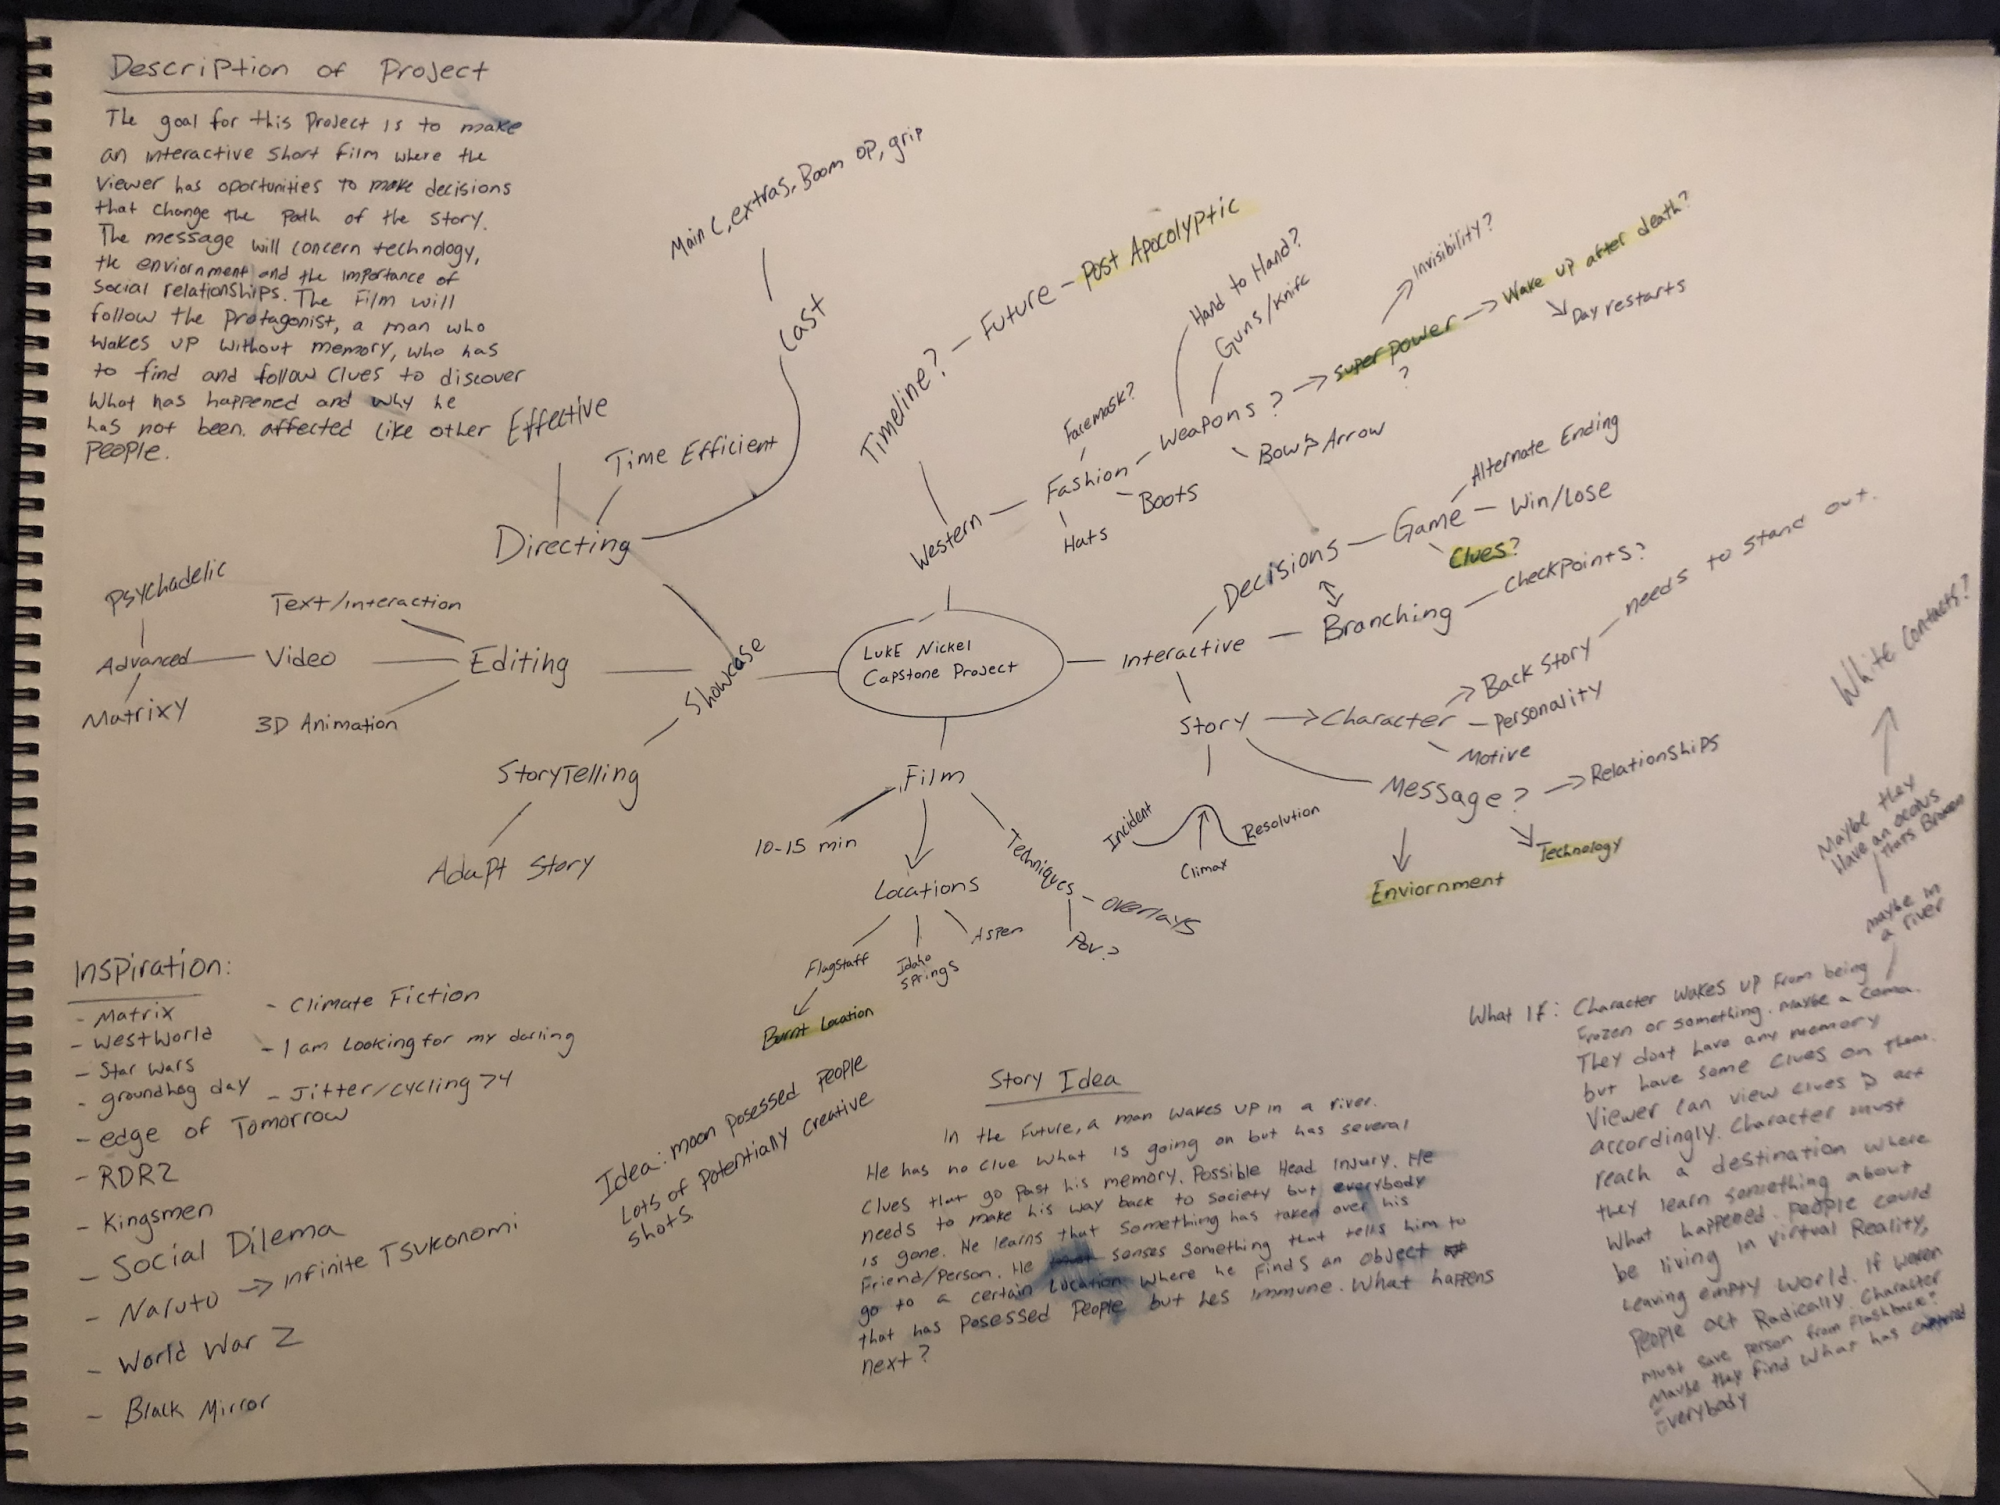 Description of Project
The goal for this Project is to make
an interactive short film where the
viewer has oportunities to make decisions
that change the path of the story.
The message will concern technology,
the enviornment and the importance of
social relationships. The Film will
follow the protagonist, a man who
wakes up without memory, who has
to find and follow clues to discover
What has happened and why he
has not been affected like other
people.
Effective
Time Efficient
Directing
Main C, extras, Boom op, grip
Cast
Timeline? - Future - Post Apocolyptic
Western
Fashion
Facemask?
Hats
Boots
Weapons?
Hand to Hand?
Guns/Knife
Bow & Arrow
Superpower
?
Invisibility?
Wake up after death?
Day restarts
Psychadelic
Text/interaction
Advanced
Video
Editing
Matrixy
3D Animation
Showcase
Storytelling
Adapt Story
Luke Nickel
Capstone Project
Interactive
Decisions
Game
Alternate Ending
Win/Lose
Clues?
Branching
Checkpoints?
Story
Character
Back Story
needs to stand out.
Personality
Motive
Message?
Relationships
Technology
Enviornment
Incident
Climax
Resolution
Film
10-15 min
Locations
Flagstaff
Idaho
Springs
Aspen
Burnt Location
Techniques
overlays
Pov?
Inspiration:
- Matrix
- Westworld
- Star Wars
- groundhog day
- edge of Tomorrow
- RDR2
- Kingsmen
- Social Dilema
- Naruto -> infinite Tsukonomi
- World War Z
- Black Mirror
- Climate Fiction
- I am Looking for my darling
- Jitter/cycling 74
Idea: moon posessed people
Lots of potentially creative
shots.
Story Idea
In the Future, a man wakes up in a river.
He has no clue what is going on but has several
clues that go past his memory. Possible Head Injury. He
needs to make his way back to society but everybody
is gone. He learns that something has taken over his
Friend/Person. He senses something that tells him to
go to a certain location where he finds an object
that has posessed people but hes immune. What happens
next?
White Contacts?
Maybe they
have an oculus
thats Broken
maybe in
a river
What If: Character wakes up from being
Frozen or something. maybe a coma.
They dont have any memory
but have some clues on them.
Viewer can view clues & act
accordingly. Character must
reach a destination where
they learn something about
what happened. People could
be living in virtual Reality,
Leaving empty world. If woken
People act Radically. Character
must save person from Flashback?
Maybe they find what has captured
Everybody